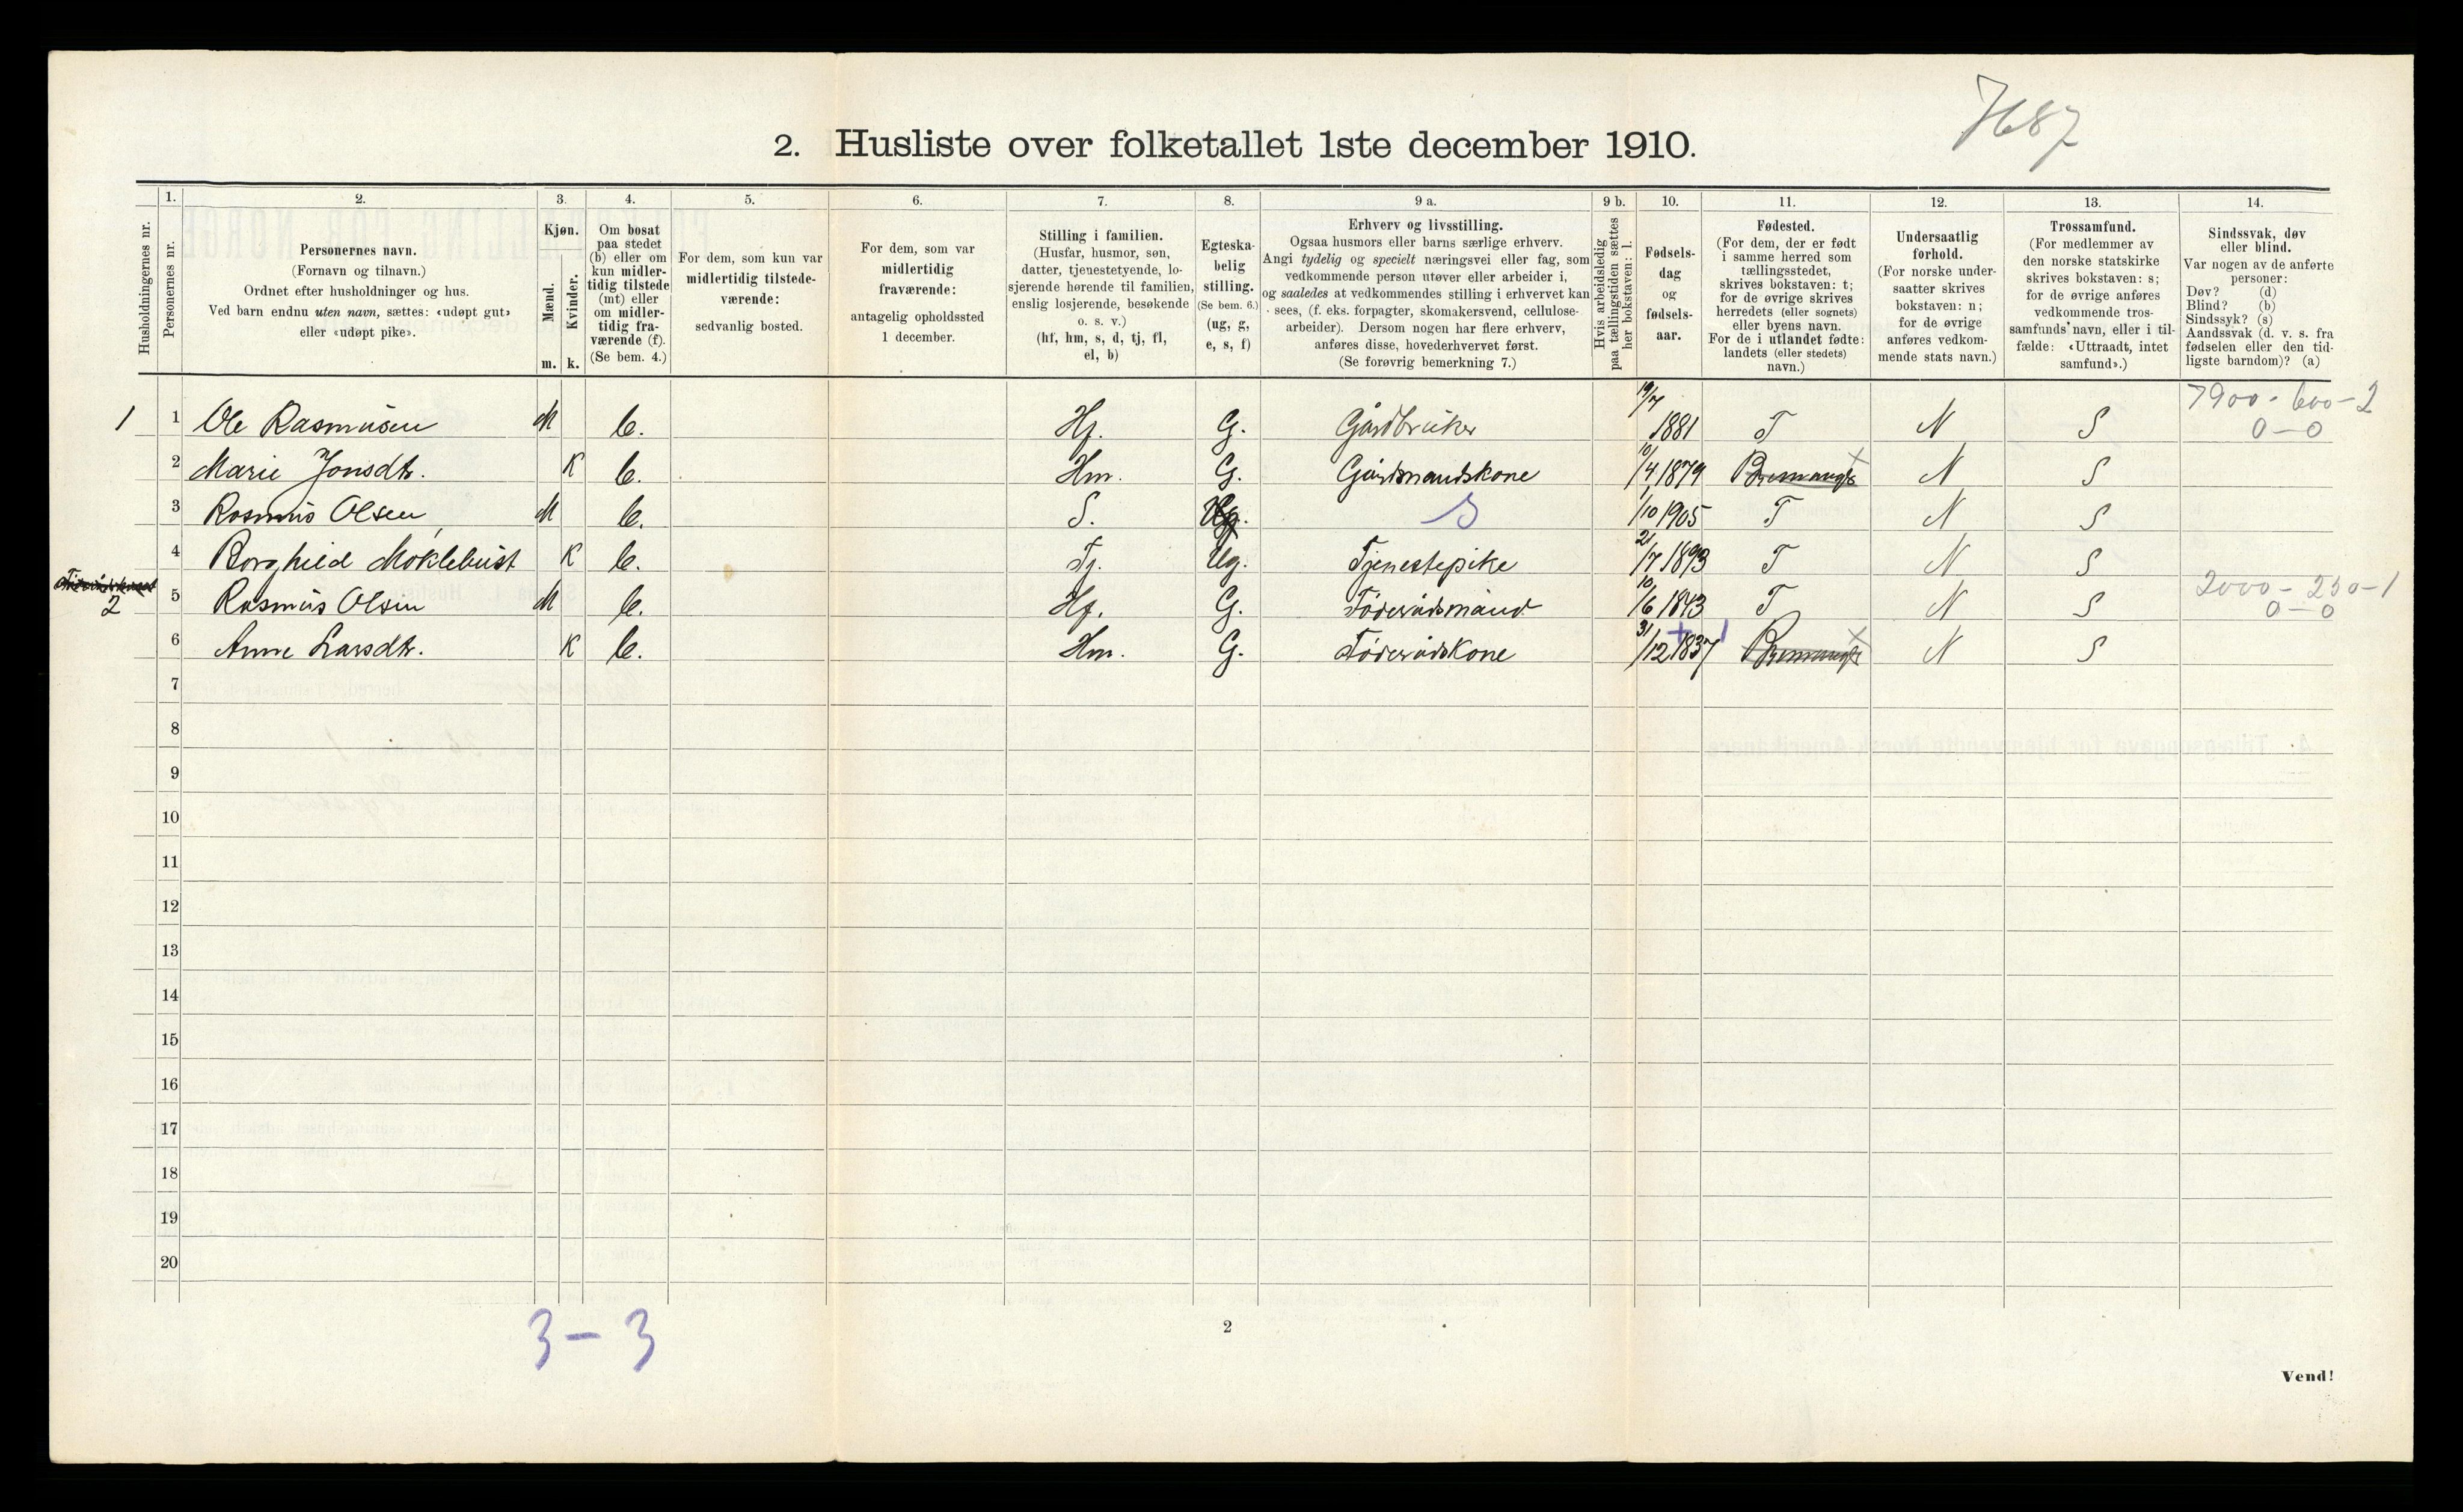 7687
2. Husliste over folketallet 1ste december 1910.
Husholdningernes nr.
1. Personernes nr.
2. Personernes navn. (Fornavn og tilnavn.) Ordnet efter husholdninger og hus. Ved barn endnu uten navn, sættes: «udøpt gut» eller «udøpt pike».
3. Kjøn. Mænd. m. Kvinder. k.
4. Om bosat paa stedet (b) eller om kun midlertidig tilstede (mt) eller om midlertidig fraværende (f). (Se bem. 4.)
5. For dem, som kun var midlertidig tilstedeværende: sedvanlig bosted.
6. For dem, som var midlertidig fraværende: antagelig opholdssted 1 december.
7. Stilling i familien. (Husfar, husmor, søn, datter, tjenestetyende, losjerende hørende til familien, enslig losjerende, besøkende o. s. v.) (hf, hm, s, d, tj, fl, el, b)
8. Egteskabelig stilling. (Se bem. 6.) (ug, g, e, s, f)
9 a. Erhverv og livsstilling. Ogsaa husmors eller barns særlige erhverv. Angi tydelig og specielt næringsvei eller fag, som vedkommende person utøver eller arbeider i, og saaledes at vedkommendes stilling i erhvervet kan sees, (f. eks. forpagter, skomakersvend, cellulosearbeider). Dersom nogen har flere erhverv, anføres disse, hovederhvervet først. (Se forøvrig bemerkning 7.)
9 b. Hvis arbeidsledig paa tællingstiden sættes her bokstaven: l.
10. Fødselsdag og fødselsaar.
11. Fødested. (For dem, der er født i samme herred som tællingsstedet, skrives bokstaven: t; for de øvrige skrives herredets (eller sognets) eller byens navn. For de i utlandet fødte: landets (eller stedets) navn.)
12. Undersaatlig forhold. (For norske undersaatter skrives bokstaven: n; for de øvrige anføres vedkommende stats navn.)
13. Trossamfund. (For medlemmer av den norske statskirke skrives bokstaven: s; for de øvrige anføres vedkommende trossamfunds navn, eller i tilfælde: «Uttraadt, intet samfund».)
14. Sindssvak, døv eller blind. Var nogen av de anførte personer: Døv? (d) Blind? (b) Sindssyk? (s) Aandssvak (d. v. s. fra fødselen eller den tidligste barndom)? (a)
1 1 Ole Rasmusen M b. Hf. G. Gårdbruker 19/7 1881 T N S 7900-600-2 0-0
2 Marie Jonsdtr. K b. Hm. G. Gårdmandskone 10/4 1879 Bremanger N S
3 Rasmus Olsen M b. S. Ug. S 1/10 1905 T N S
4 Borghild Moklebust K b. Tj. Ug. Tjenestepike 21/7 1893 T N S
2 5 Rasmus Olsen M b. Hf. G. Føderådsmand 10/6 1843 T N S 2000-250-1 0-0
6 Anne Larsdtr. K b. Hm. G. Føderådskone 31/12 1837 Bremanger N S
7
8
9
10
11
12
13
14
15
16
17
18
19
20
3-3
2
Vend!